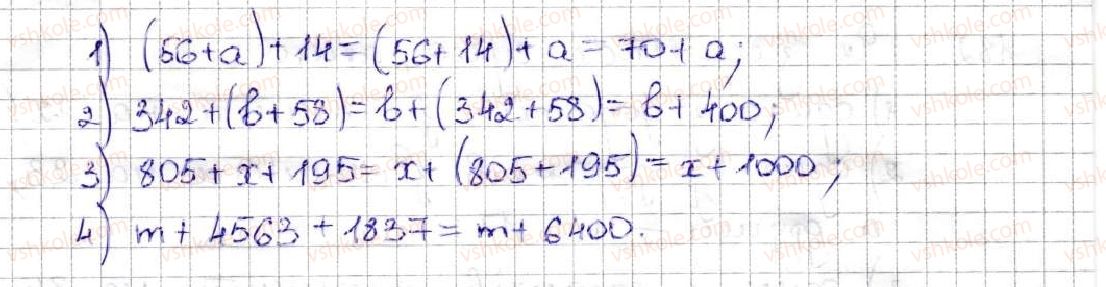 1) (56+a)+14=(56+14)+a=70+a;
2) 342+(b+58)=b+(342+58)=b+400;
3) 805+x+195=x+(805+195)=x+1000;
4) m+4563+1837=m+6400.